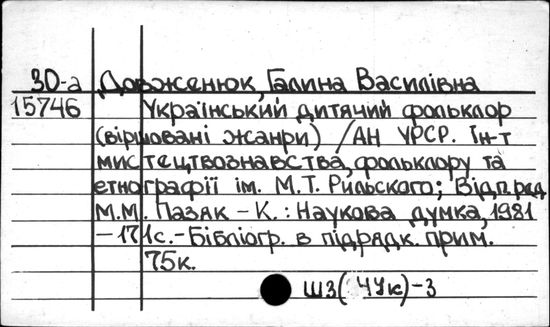 30-а Довженюк, Галина Василівна
15746 Український дитячий фольклор
(віршовані жанри) / АН УРСР. Ін-т
мистецтвознавства, фольклору та
етнографії ім. М.Т. Рильского; Відп.ред
М.М. Пазяк - К.: Наукова думка, 1981
- 171с. - Бібліогр. в підрядк. прим.
75к.
Ш3(4Ук)-3